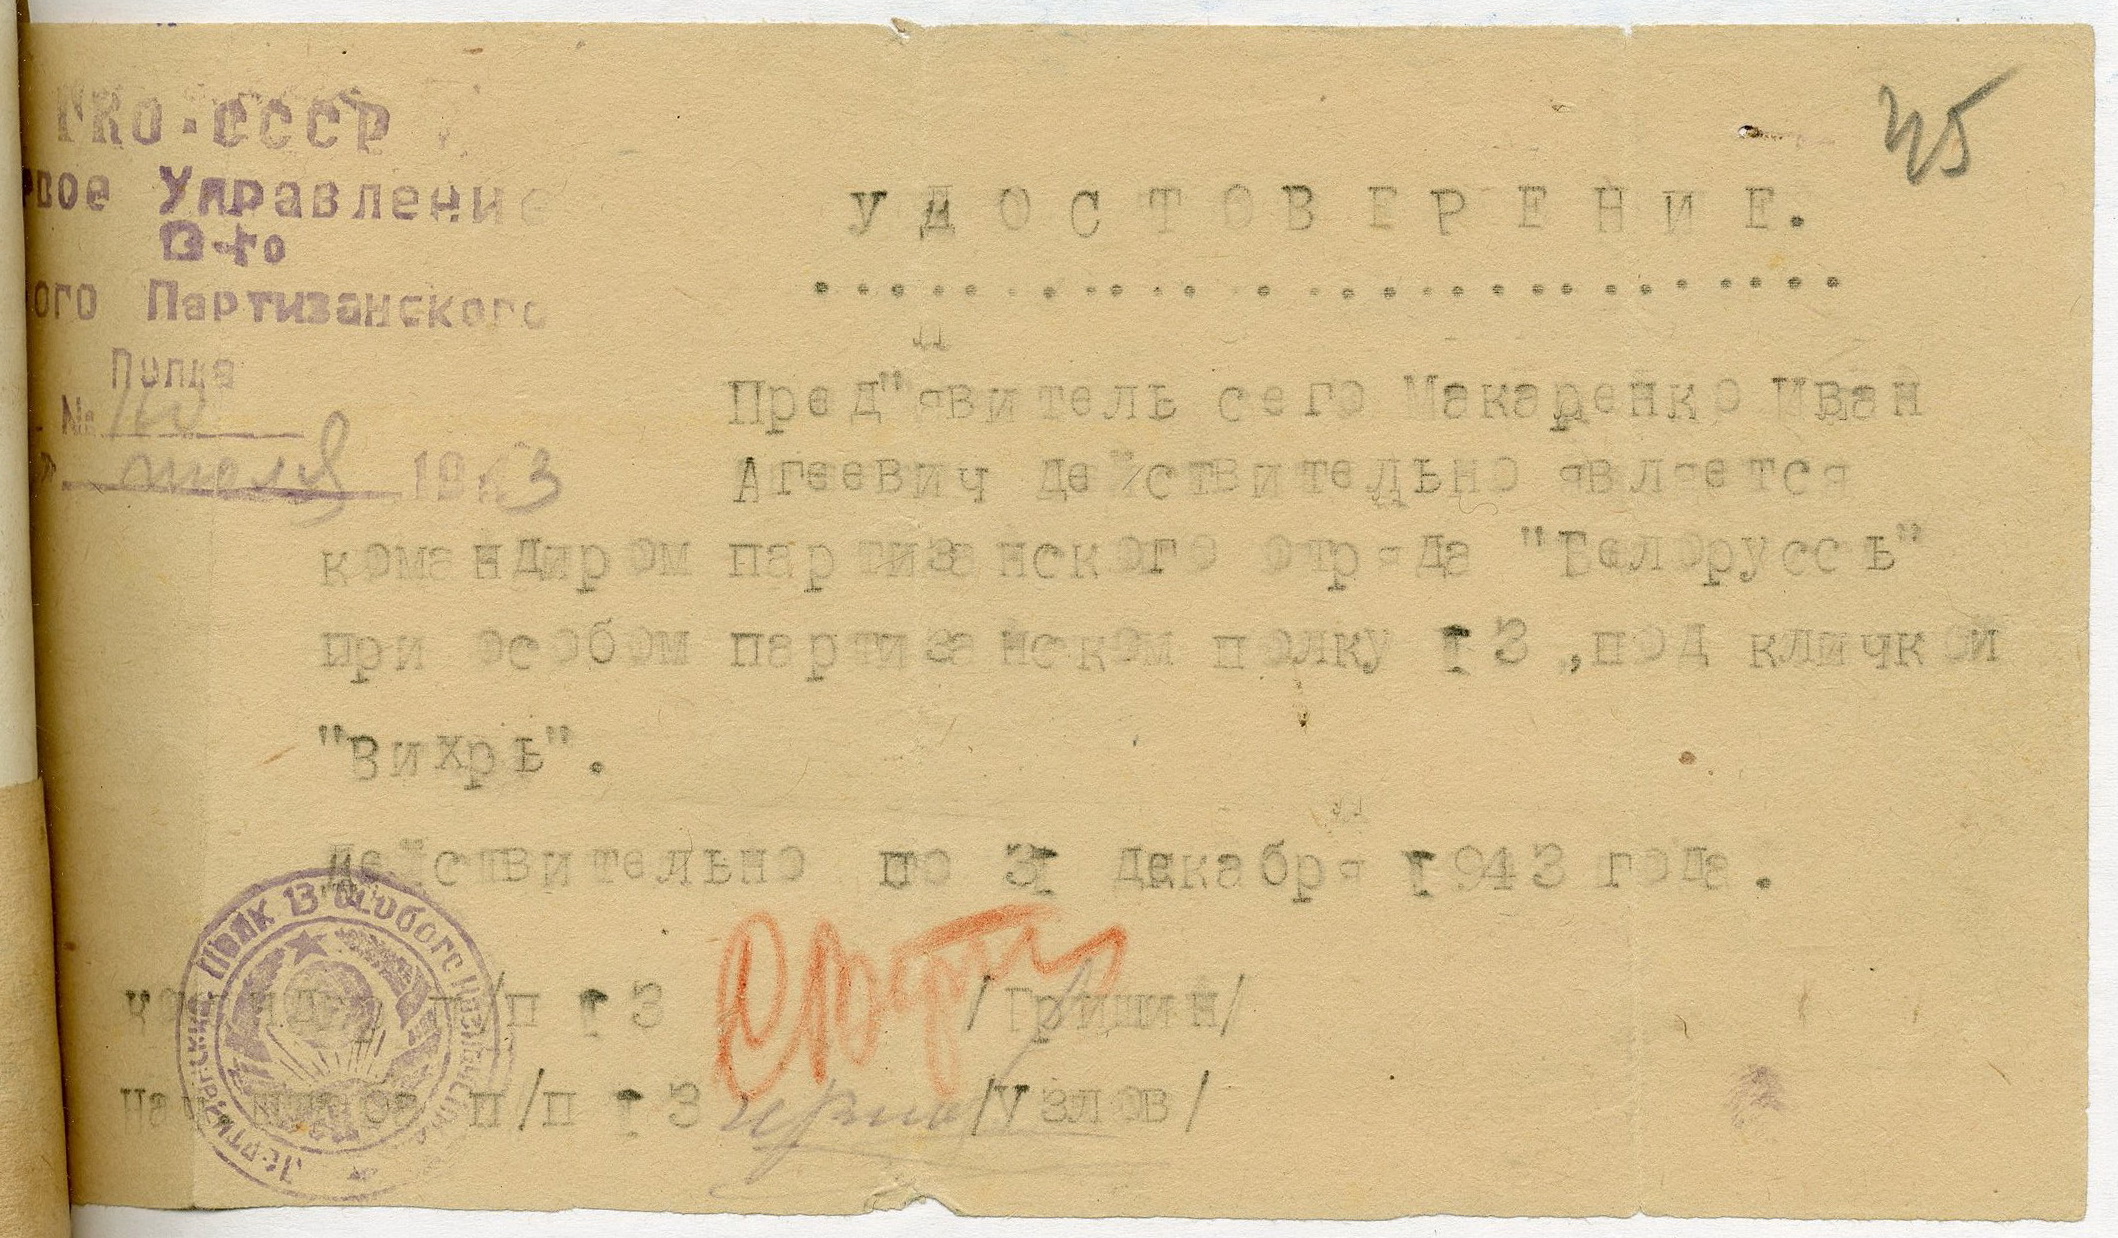 ГКО-СССР
рвое Управление
13-го
ого Партизанского
Полка
№ 110
" июля 1943
45
УДОСТОВЕРЕНИЕ.
Пред"явитель сего Макаренко Иван
Агеевич действительно является
командиром партизанского отряда "Белоруссь"
при особом партизанском полку 13 ,под кличкой
"Вихрь".
Действительно по 31 декабря 1943 года.
Командир п/п 13 /Гришин/
Нач штаба п/п 13 /Узлов/
полк 13 особого